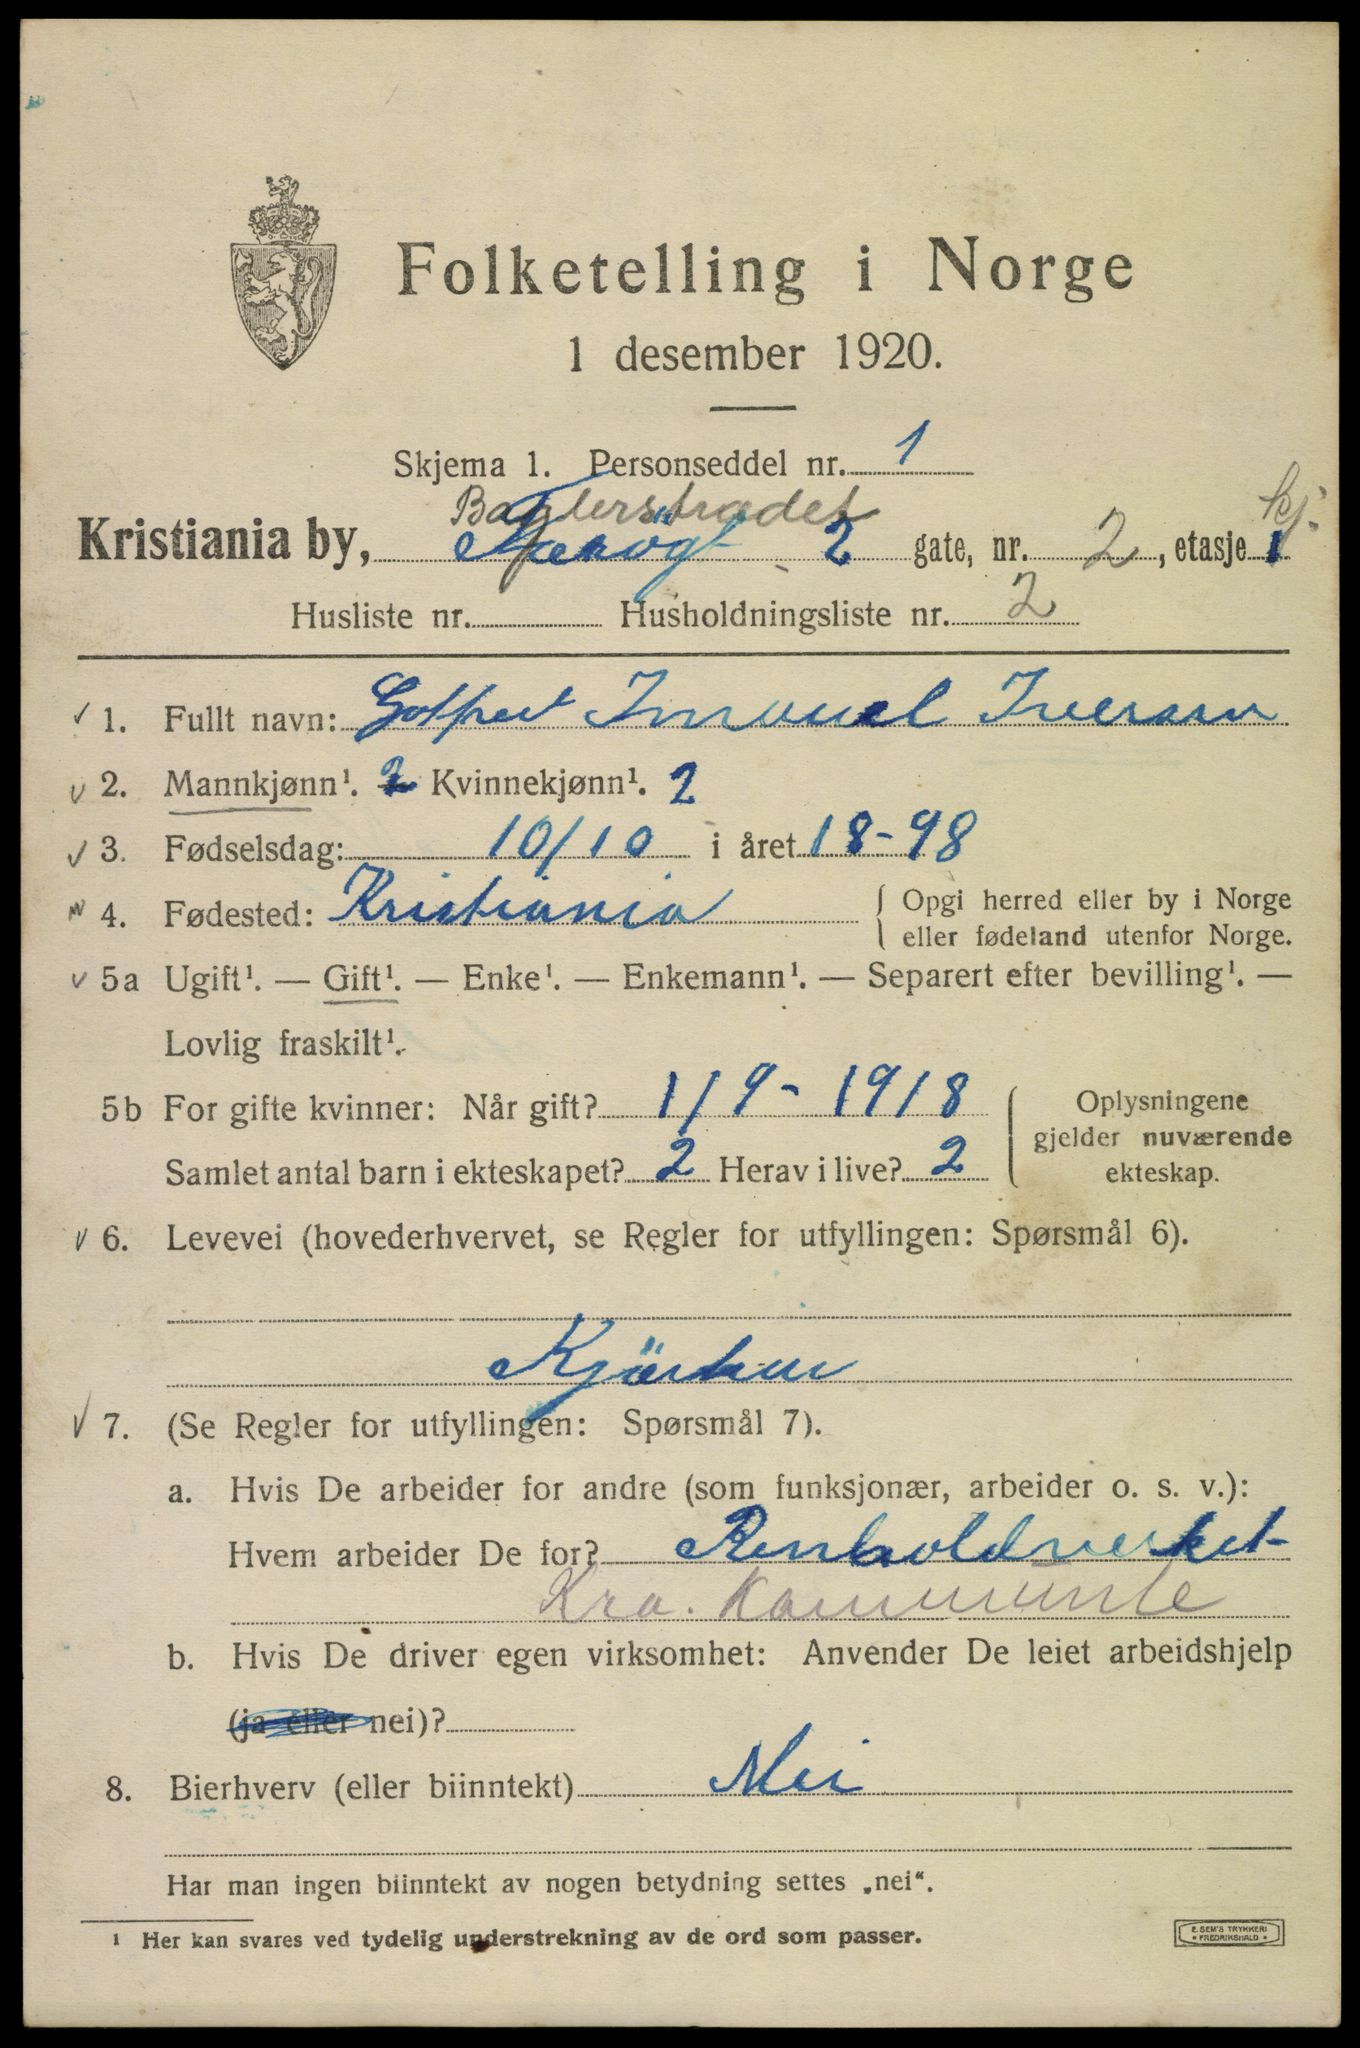 Folketelling i Norge
1 desember 1920.
Skjema 1. Personseddel nr. 1
Baglerstradet kj.
Kristiania by, 2 gate, nr. 2, etasje 1
Husliste nr. Husholdningsliste nr. 2
✓ 1. Fullt navn: Gotfred Imanuel Iversen
v 2. Mannkjønn¹. 2 Kvinnekjønn¹. 2
✓ 3. Fødselsdag: 10/10 i året 18-98
4. Fødested: Kristiania { Opgi herred eller by i Norge
eller fødeland utenfor Norge.
v 5a Ugift¹. — Gift¹. — Enke¹. — Enkemann¹. — Separert efter bevilling¹. —
Lovlig fraskilt¹.
5b For gifte kvinner: Når gift? 1/9 - 1918 ( Oplysningene
gjelder nuværende
Samlet antal barn i ekteskapet? 2 Herav i live? 2 ekteskap.
v 6. Levevei (hovederhvervet, se Regler for utfyllingen: Spørsmål 6).
Kjörkar
v 7. (Se Regler for utfyllingen: Spørsmål 7).
a. Hvis De arbeider for andre (som funksjonær, arbeider o. s. v.):
Hvem arbeider De for? Renholdverket
Kra. Kommune
b. Hvis De driver egen virksomhet: Anvender De leiet arbeidshjelp
(ja eller nei)?
8. Bierhverv (eller biinntekt) Nei
Har man ingen biinntekt av nogen betydning settes „nei“.
¹ Her kan svares ved tydelig understrekning av de ord som passer.
E. SEM'S TRYKKERI
• FREDRIKSHALD •